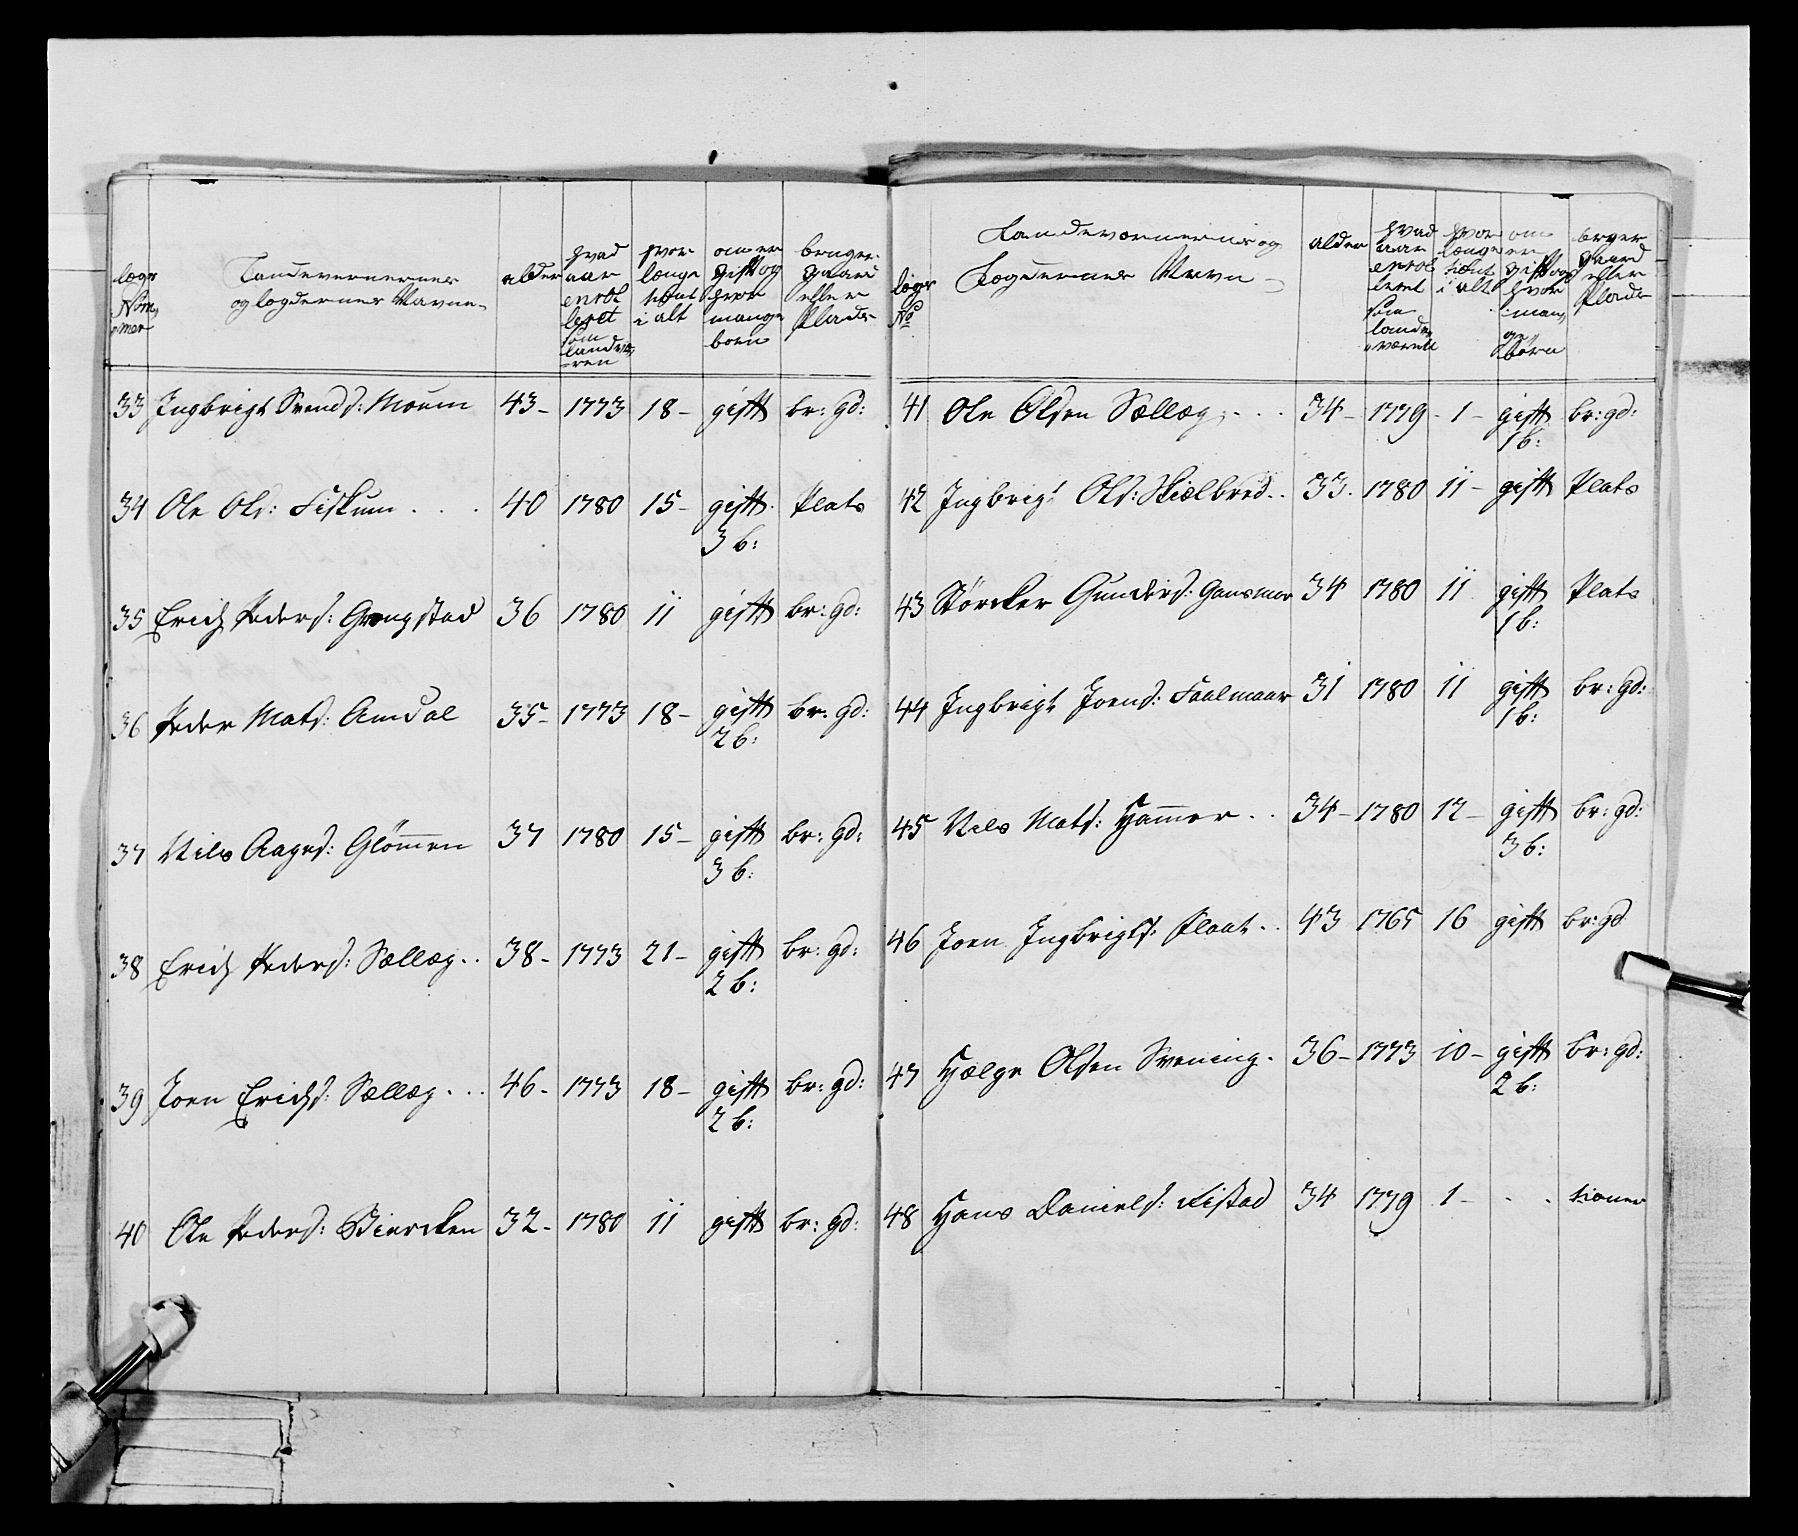 lægs Nommer | Landevernernes og lægdernes Navne | alder | hvad aar enrolleret som landværen | hvor længe tient i alt | om er gift og hvor mange born | bruger gaard eller Plads
33 Ingbrigt Svends: Moum 43 - 1773 18 - gift br: gd:
34 Ole Ols: Fiskum . . . 40 1780 15 - gift Plats
3 b:
35 Erich Peders: Grongstad 36 1780 11 gift br: gd:
36 Peder Mats: Amdal 35 - 1773 18 - gift br: gd:
2 b:
37 Nils Aages: Glømmen 37 1780 15 - gift br: gd:
3 b:
38 Erich Peders: Sællæg . . 38 - 1773 21 - gift br: gd:
2 b:
39 Joen Erichs: Sællæg . . . 46 - 1773 18 - gift br: gd:
2 b:
40 Ole Peders: Biørcken 32 - 1780 11 gift br: gd:
lægs No | Landeværnernis og Lægdernes Navn | alder | hvad aar enrolleret som landeværnet | hvor længe tient i alt | om er gift og hvor mange børn | bruger gaard eller Plads
41 Ole Olsen Sællæg . . . 34 - 1779 - 1 - gift br: gd:
1 b:
42 Ingbrigt Ols: Skielbred . . 33. 1780 11 - gift Plats
43 Størcker Gunders: Gansmoe 34 1780 11 gift Plats
1 b:
44 Ingbrigt Joens: Faalmaar 31 1780 11 gift br: gd:
1 b:
45 Nils Mats: Hammer . . 34 - 1780 12 - gift br: gd:
3 b:
46 Joen Ingbrigts: Flaat . . 43 1765 16 gift br: gd
47 Hælge Olsen Svening . 36 - 1773 10 - gift br: gd:
2 b:
48 Hans Daniels: Fistad 34 1779 1 - . . tiener